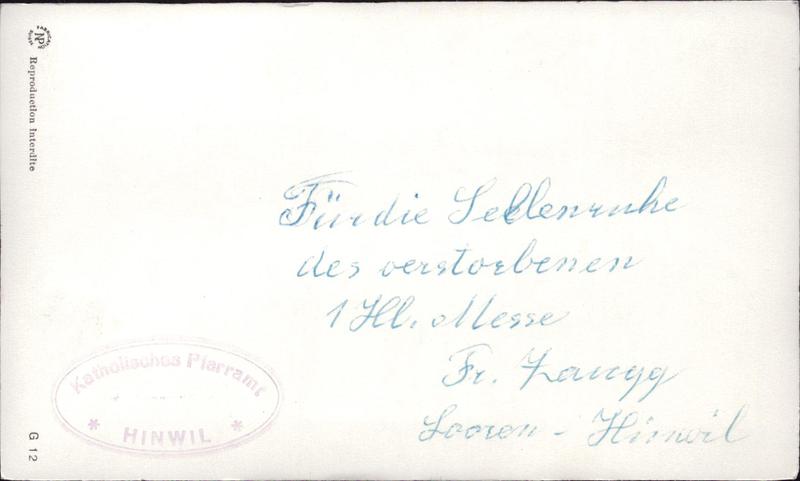 NP
Reproduction Interdite
Für die Sellenruhe
des verstorbenen
1 Hl. Messe
Fr. Zaugg
Looren - Hinwil
Katholisches Pfarramt
* HINWIL *
G 12